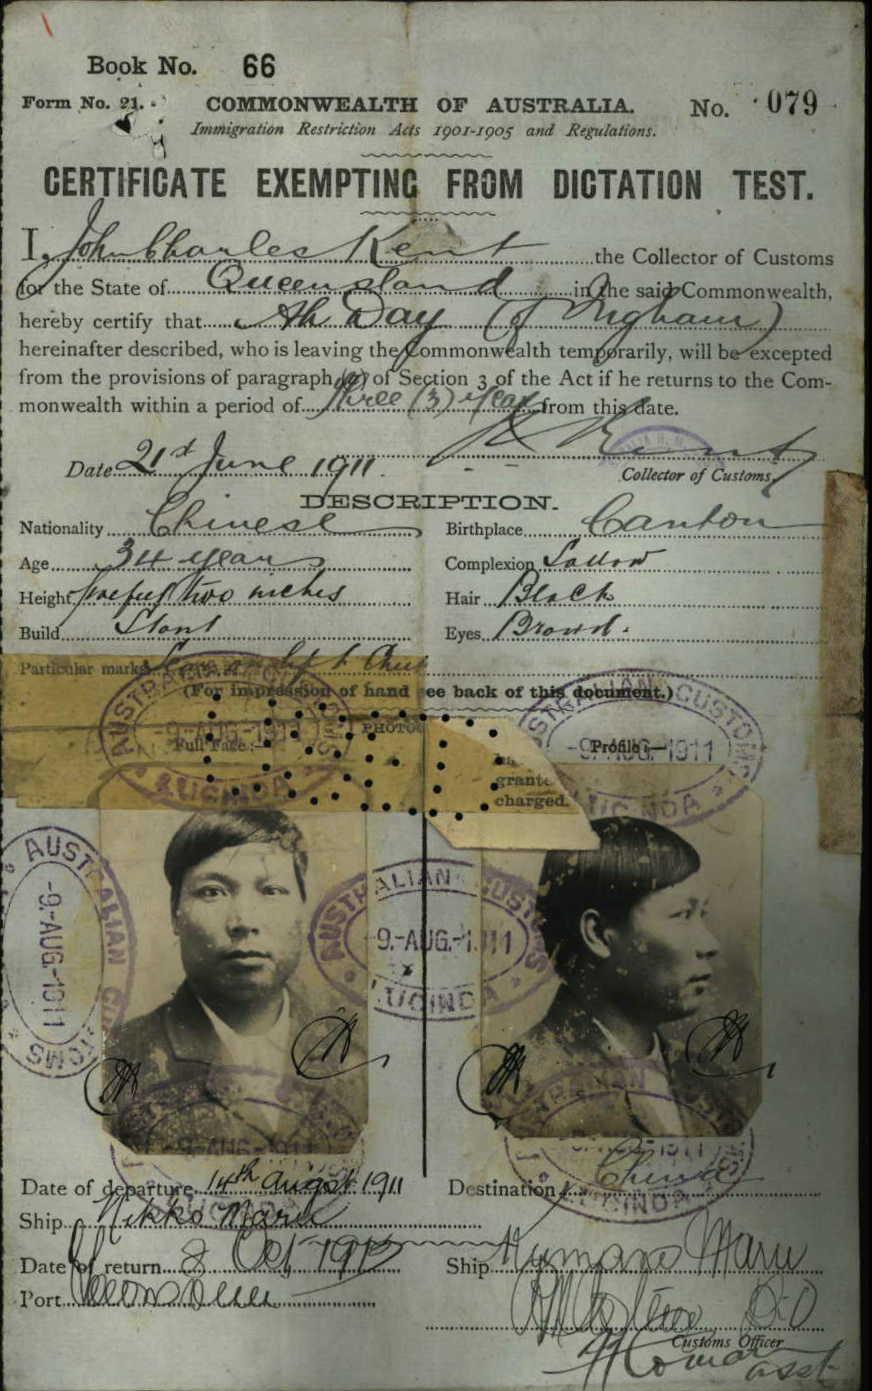 Book No. 66
Form No. 21. COMMONWEALTH OF AUSTRALIA. No. 079
Immigration Restriction Acts 1901-1905 and Regulations.
CERTIFICATE EXEMPTING FROM DICTATION TEST.
I, John Charles Kent the Collector of Customs
for the State of Queensland in the said Commonwealth,
hereby certify that Ah Day (of Ingham)
hereinafter described, who is leaving the Commonwealth temporarily, will be excepted
from the provisions of paragraph (a) of Section 3 of the Act if he returns to the Com-
monwealth within a period of three (3) years from this date.
Date 21st June 1911. Kent
Collector of Customs.
DESCRIPTION.
Nationality Chinese Birthplace Canton
Age 34 years Complexion Sallow
Height five feet two inches Hair Black
Build Stout Eyes Brown.
Particular marks Scar on left
(For impression of hand see back of this document.)
PHOTOG
Full Face:— Profile:—
grante
charged.
AUSTRALIAN CUSTOMS
-9.-AUG.-1911
LUCINDA
AUSTRALIAN CUSTOMS
-9.-AUG.-1911
LUCINDA
AUSTRALIAN CUSTOMS
-9.-AUG.-1911
AUSTRALIAN CUSTOMS
9.-AUG.-1911
LUCINDA
-9-AUG-1911
LUCINDA
Date of departure 14th August 1911 Destination China
Ship Nikko Maru
Date of return 8 Oct 1913 Ship Kumano Maru
Port
Customs Officer
asst